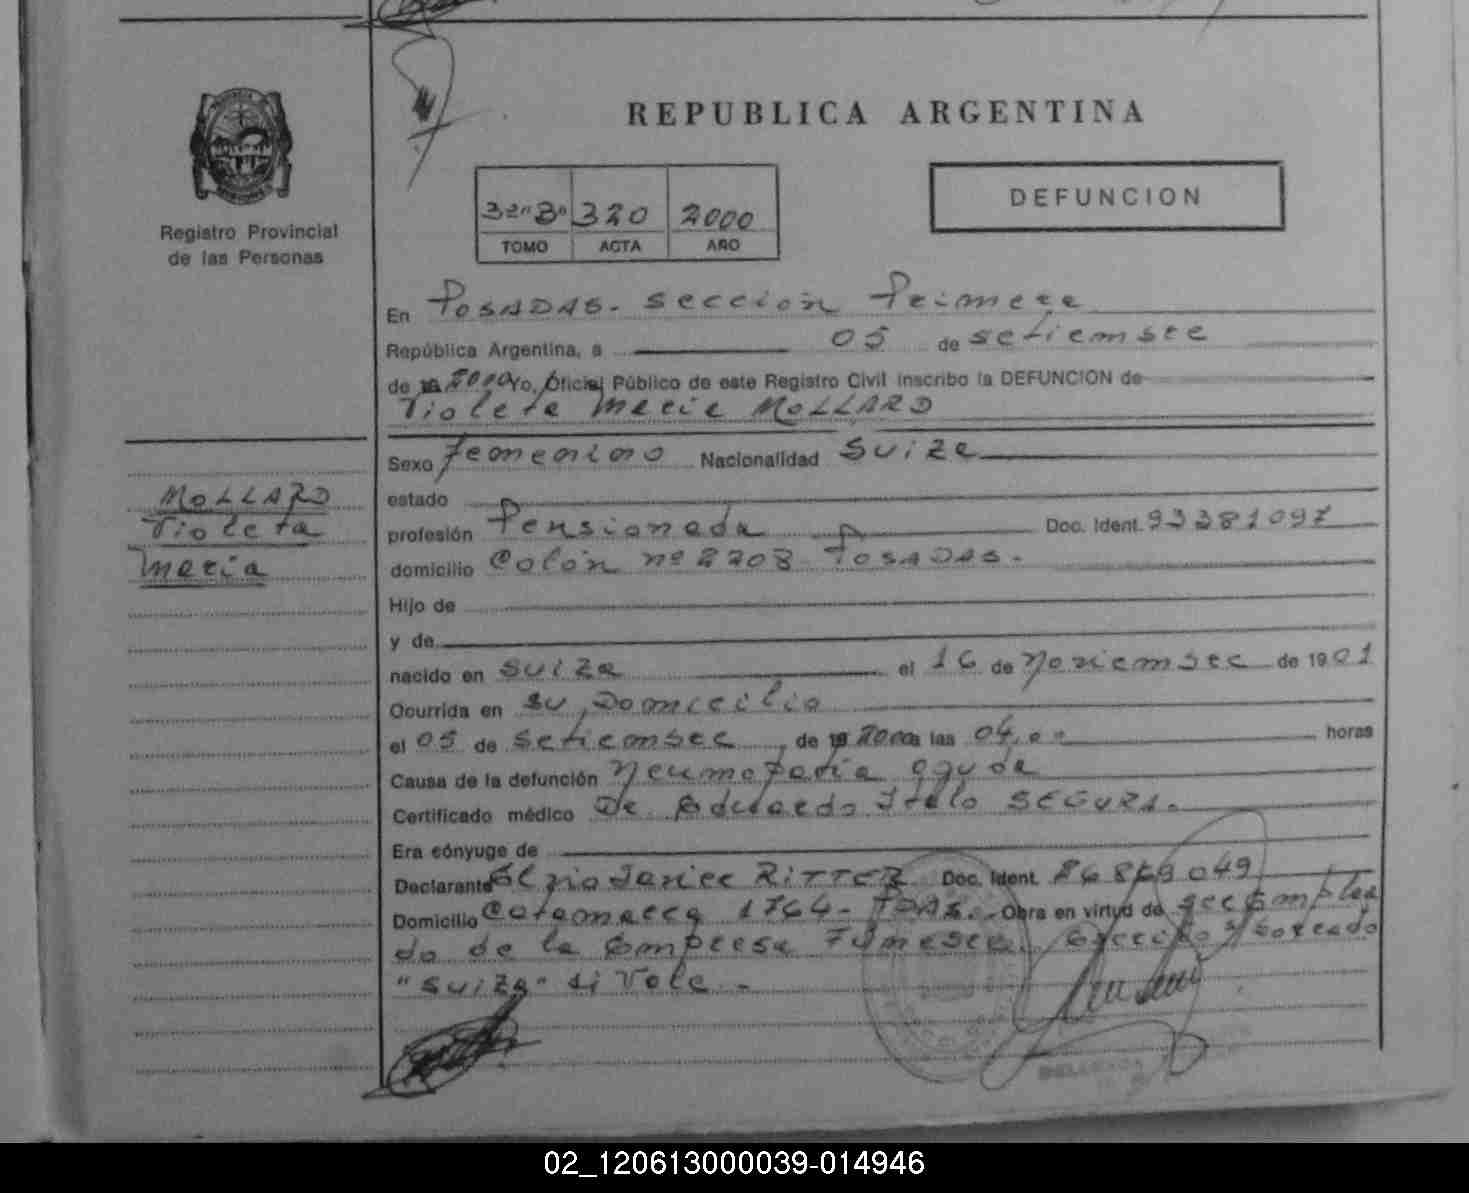 REPUBLICA ARGENTINA
DEFUNCION
Registro Provincial
de las Personas
32" B° 320 2000
TOMO ACTA AÑO
En POSADAS. sección Primera
República Argentina, a 05 de setiembre
de 2000 Yo, Oficial Público de este Registro Civil inscribo la DEFUNCION de
Violeta Maria MOLLARD
Sexo femenino Nacionalidad Suiza
MOLLARD
Violeta
Maria
estado
profesión Pensionada Doc. Ident. 93381097
domicilio Colón nº 2208 POSADAS.
Hijo de
y de
nacido en SUIZA el 16 de Noviembre de 1901
Ocurrida en su Domicilio
el 05 de setiembre de 2000 a las 04,00 horas
Causa de la defunción Neumopatia aguda
Certificado médico Dr. Eduardo Italo SEGURA.
Era cónyuge de
Declarante Javier RITTER Doc. Ident.
Domicilio Catamarca 1764- PDAS. Obra en virtud de ser Emplea
do de la Empresa Escrito s/ borrado
"SUIZA" si Vale -
02_120613000039-014946